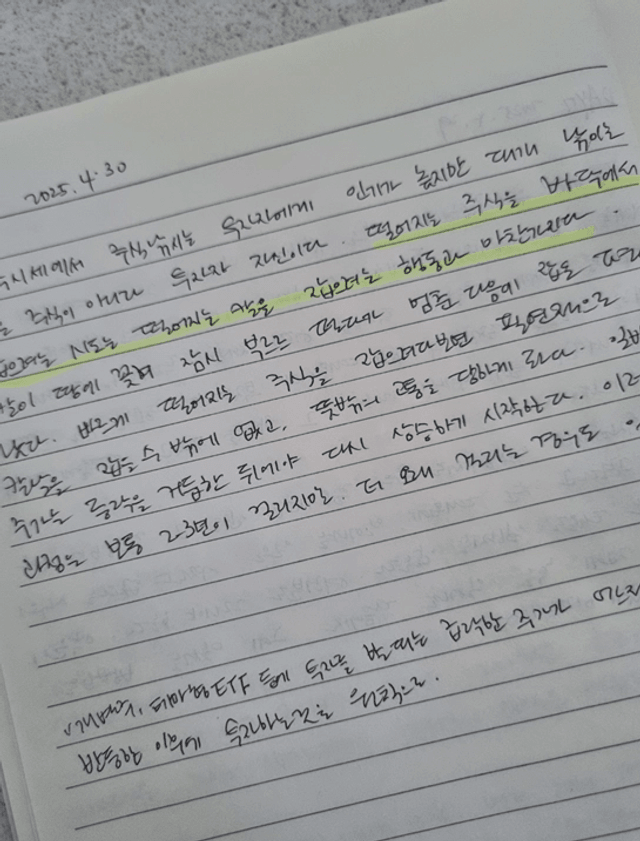 2025.4.30
시세에서 주식낚시는 투자자에게 인기가 높지만 대개 낚이는
주식이 아니라 투자자 자신이다. 떨어지는 주식을 바닥에서
잡으려는 시도는 떨어지는 칼을 잡으려는 행동과 마찬가지다.
칼이 땅에 꽂혀 잠시 부르르 떨다가 멈춘 다음에 잡을
낫다. 빠르게 떨어지는 주식을 잡으려다보면 필연적으로
칼날을 잡을 수 밖에 없고, 뜻밖의 고통을 당하게 된다.
주가는 등락을 거듭한 뒤에야 다시 상승하기 시작한다. 이러
과정은 보통 2-3년이 걸리지만. 더 오래 걸리는 경우도
개별주, 테마형ETF 등에 투자를 할때는 급락한 주가가
반등한 이후에 투자하는것을 원칙으로.